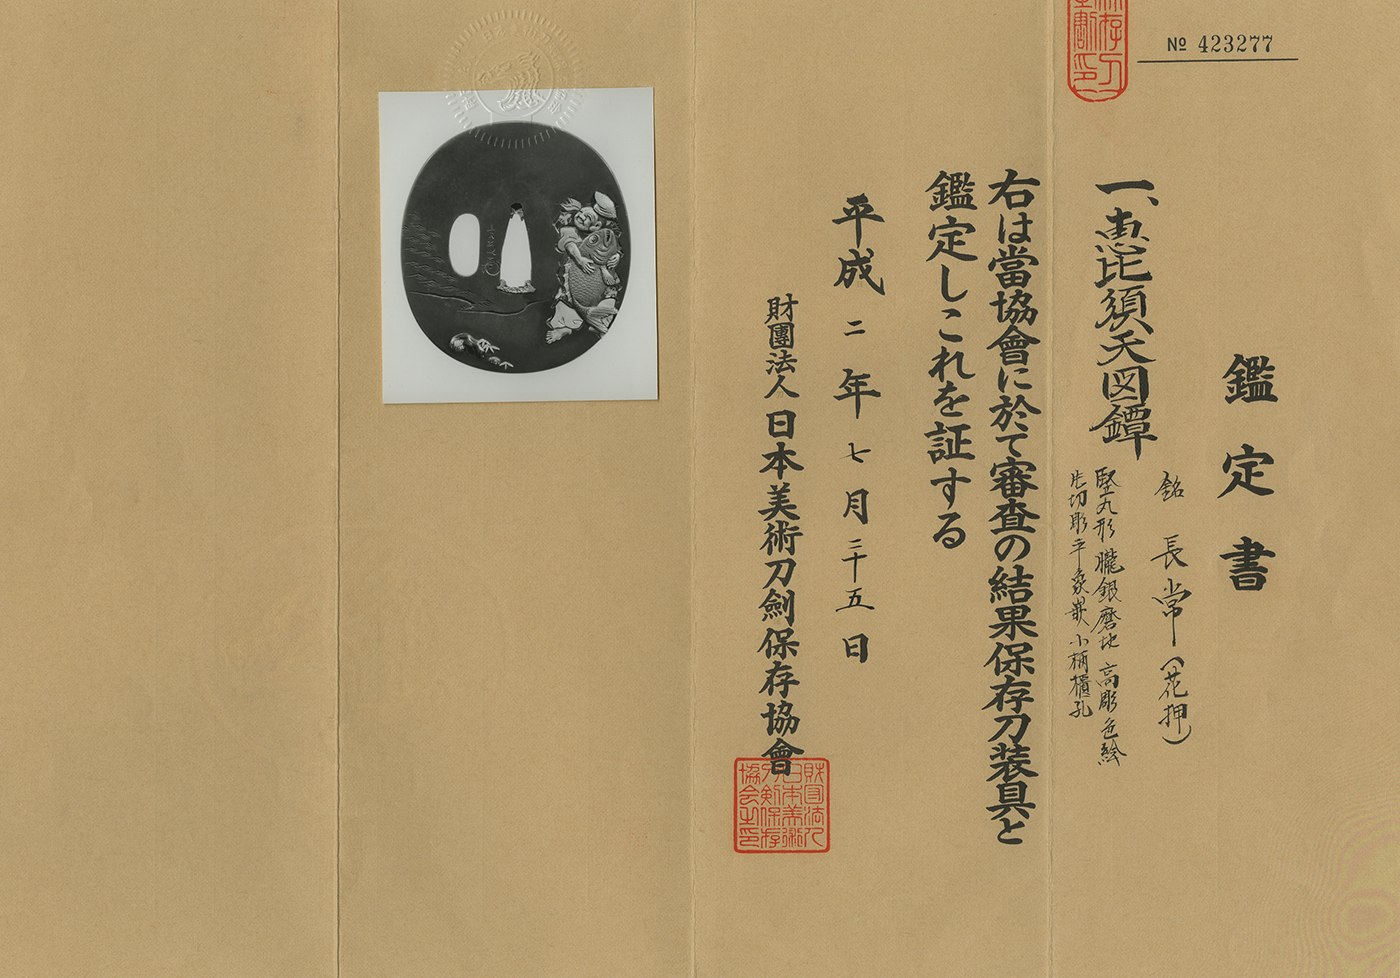 № 423277
鑑定書
一、恵比須天図鐔
銘 長常(花押)
竪丸形 朧銀磨地 高彫色絵
片切彫平象嵌 小柄櫃孔
右は當協會に於て審査の結果保存刀装具と
鑑定しこれを証する
平成二年七月二十五日
財團法人 日本美術刀劍保存協會
財団法人
日本美術
刀剣保存
協会之印